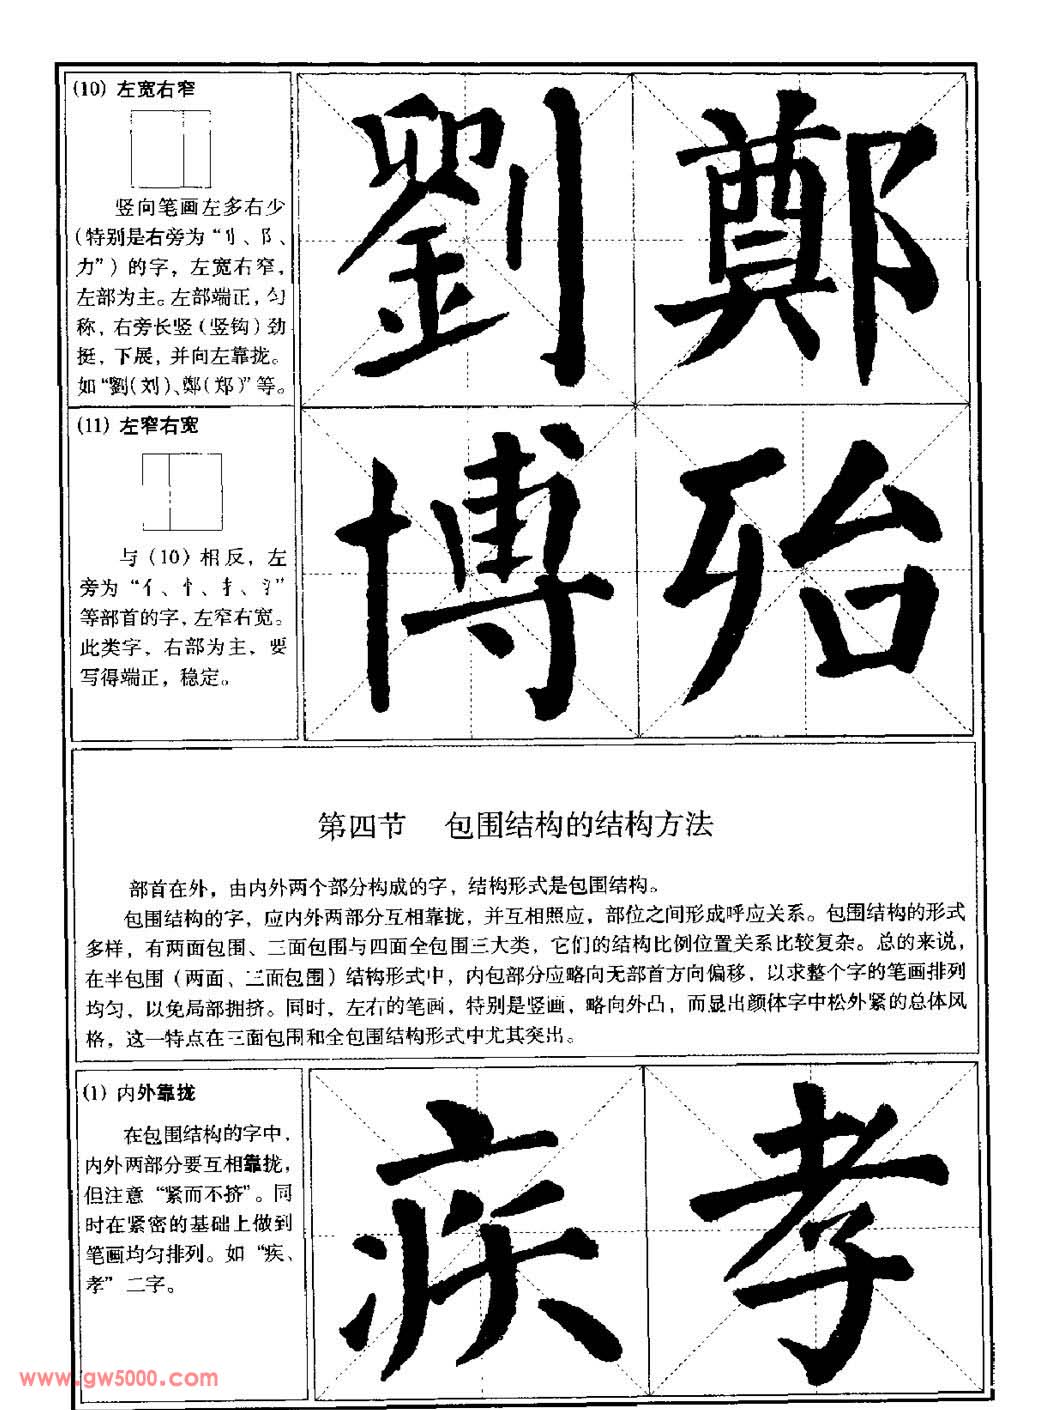 (10) 左宽右窄
竖向笔画左多右少
(特别是右旁为“刂、阝、
力”)的字，左宽右窄，
左部为主。左部端正，匀
称，右旁长竖(竖钩)劲
挺，下展，并向左靠拢。
如“劉(刘)、鄭(郑)”等。
劉鄭
(11) 左窄右宽
与(10)相反，左
旁为“亻、忄、扌、氵”
等部首的字，左窄右宽。
此类字，右部为主，要
写得端正，稳定。
博殆
第四节 包围结构的结构方法
部首在外，由内外两个部分构成的字，结构形式是包围结构。
包围结构的字，应内外两部分互相靠拢，并互相照应，部位之间形成呼应关系。包围结构的形式
多样，有两面包围、三面包围与四面全包围三大类，它们的结构比例位置关系比较复杂。总的来说，
在半包围(两面、三面包围)结构形式中，内包部分应略向无部首方向偏移，以求整个字的笔画排列
均匀，以免局部拥挤。同时，左右的笔画，特别是竖画，略向外凸，而显出颜体字中松外紧的总体风
格，这一特点在三面包围和全包围结构形式中尤其突出。
(1) 内外靠拢
在包围结构的字中，
内外两部分要互相靠拢，
但注意“紧而不挤”。同
时在紧密的基础上做到
笔画均匀排列。如“疾、
孝”二字。
疾孝
www.gw5000.com